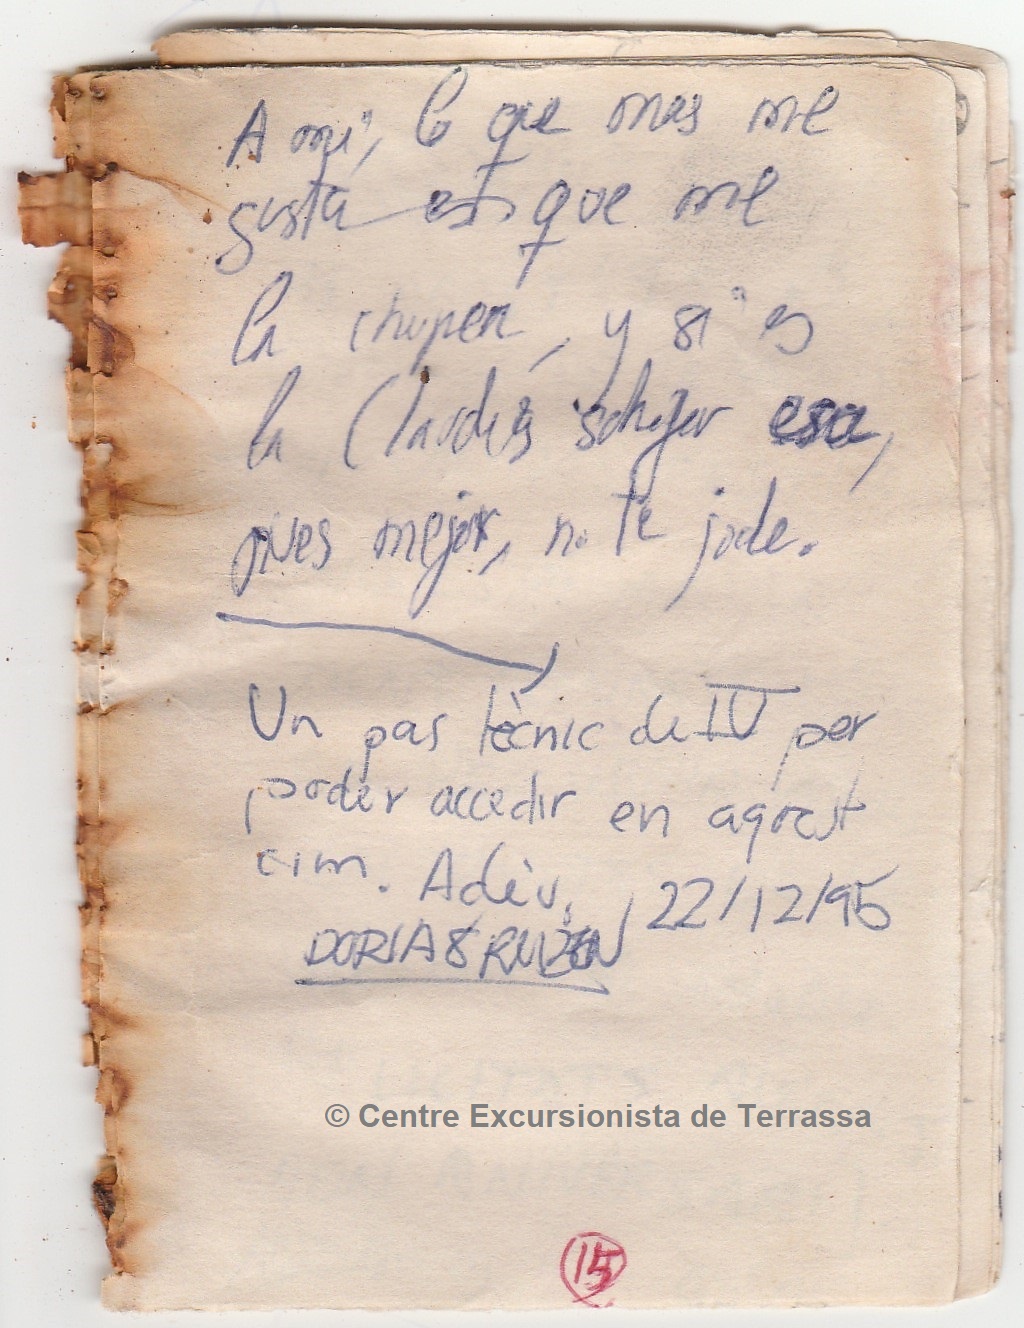 A mi, lo que mas me
gusta es que me
la chupen, y si es
la Claudia schiffer esa,
pues mejor, no te jode.
Un pas tècnic de IV per
poder accedir en aqrest
cim. Adèu.
22/12/95
DORIA & RUBEN
© Centre Excursionista de Terrassa
15